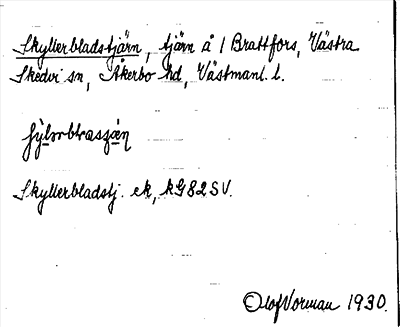 Skyllerbladstjärn, tjärn å 1 Brattfors, Västra
Skedvi sn, Åkerbo hd, Västmanl. l.
Skyllerbladstj. ek, kG82SV.
Olof Norman 1930.